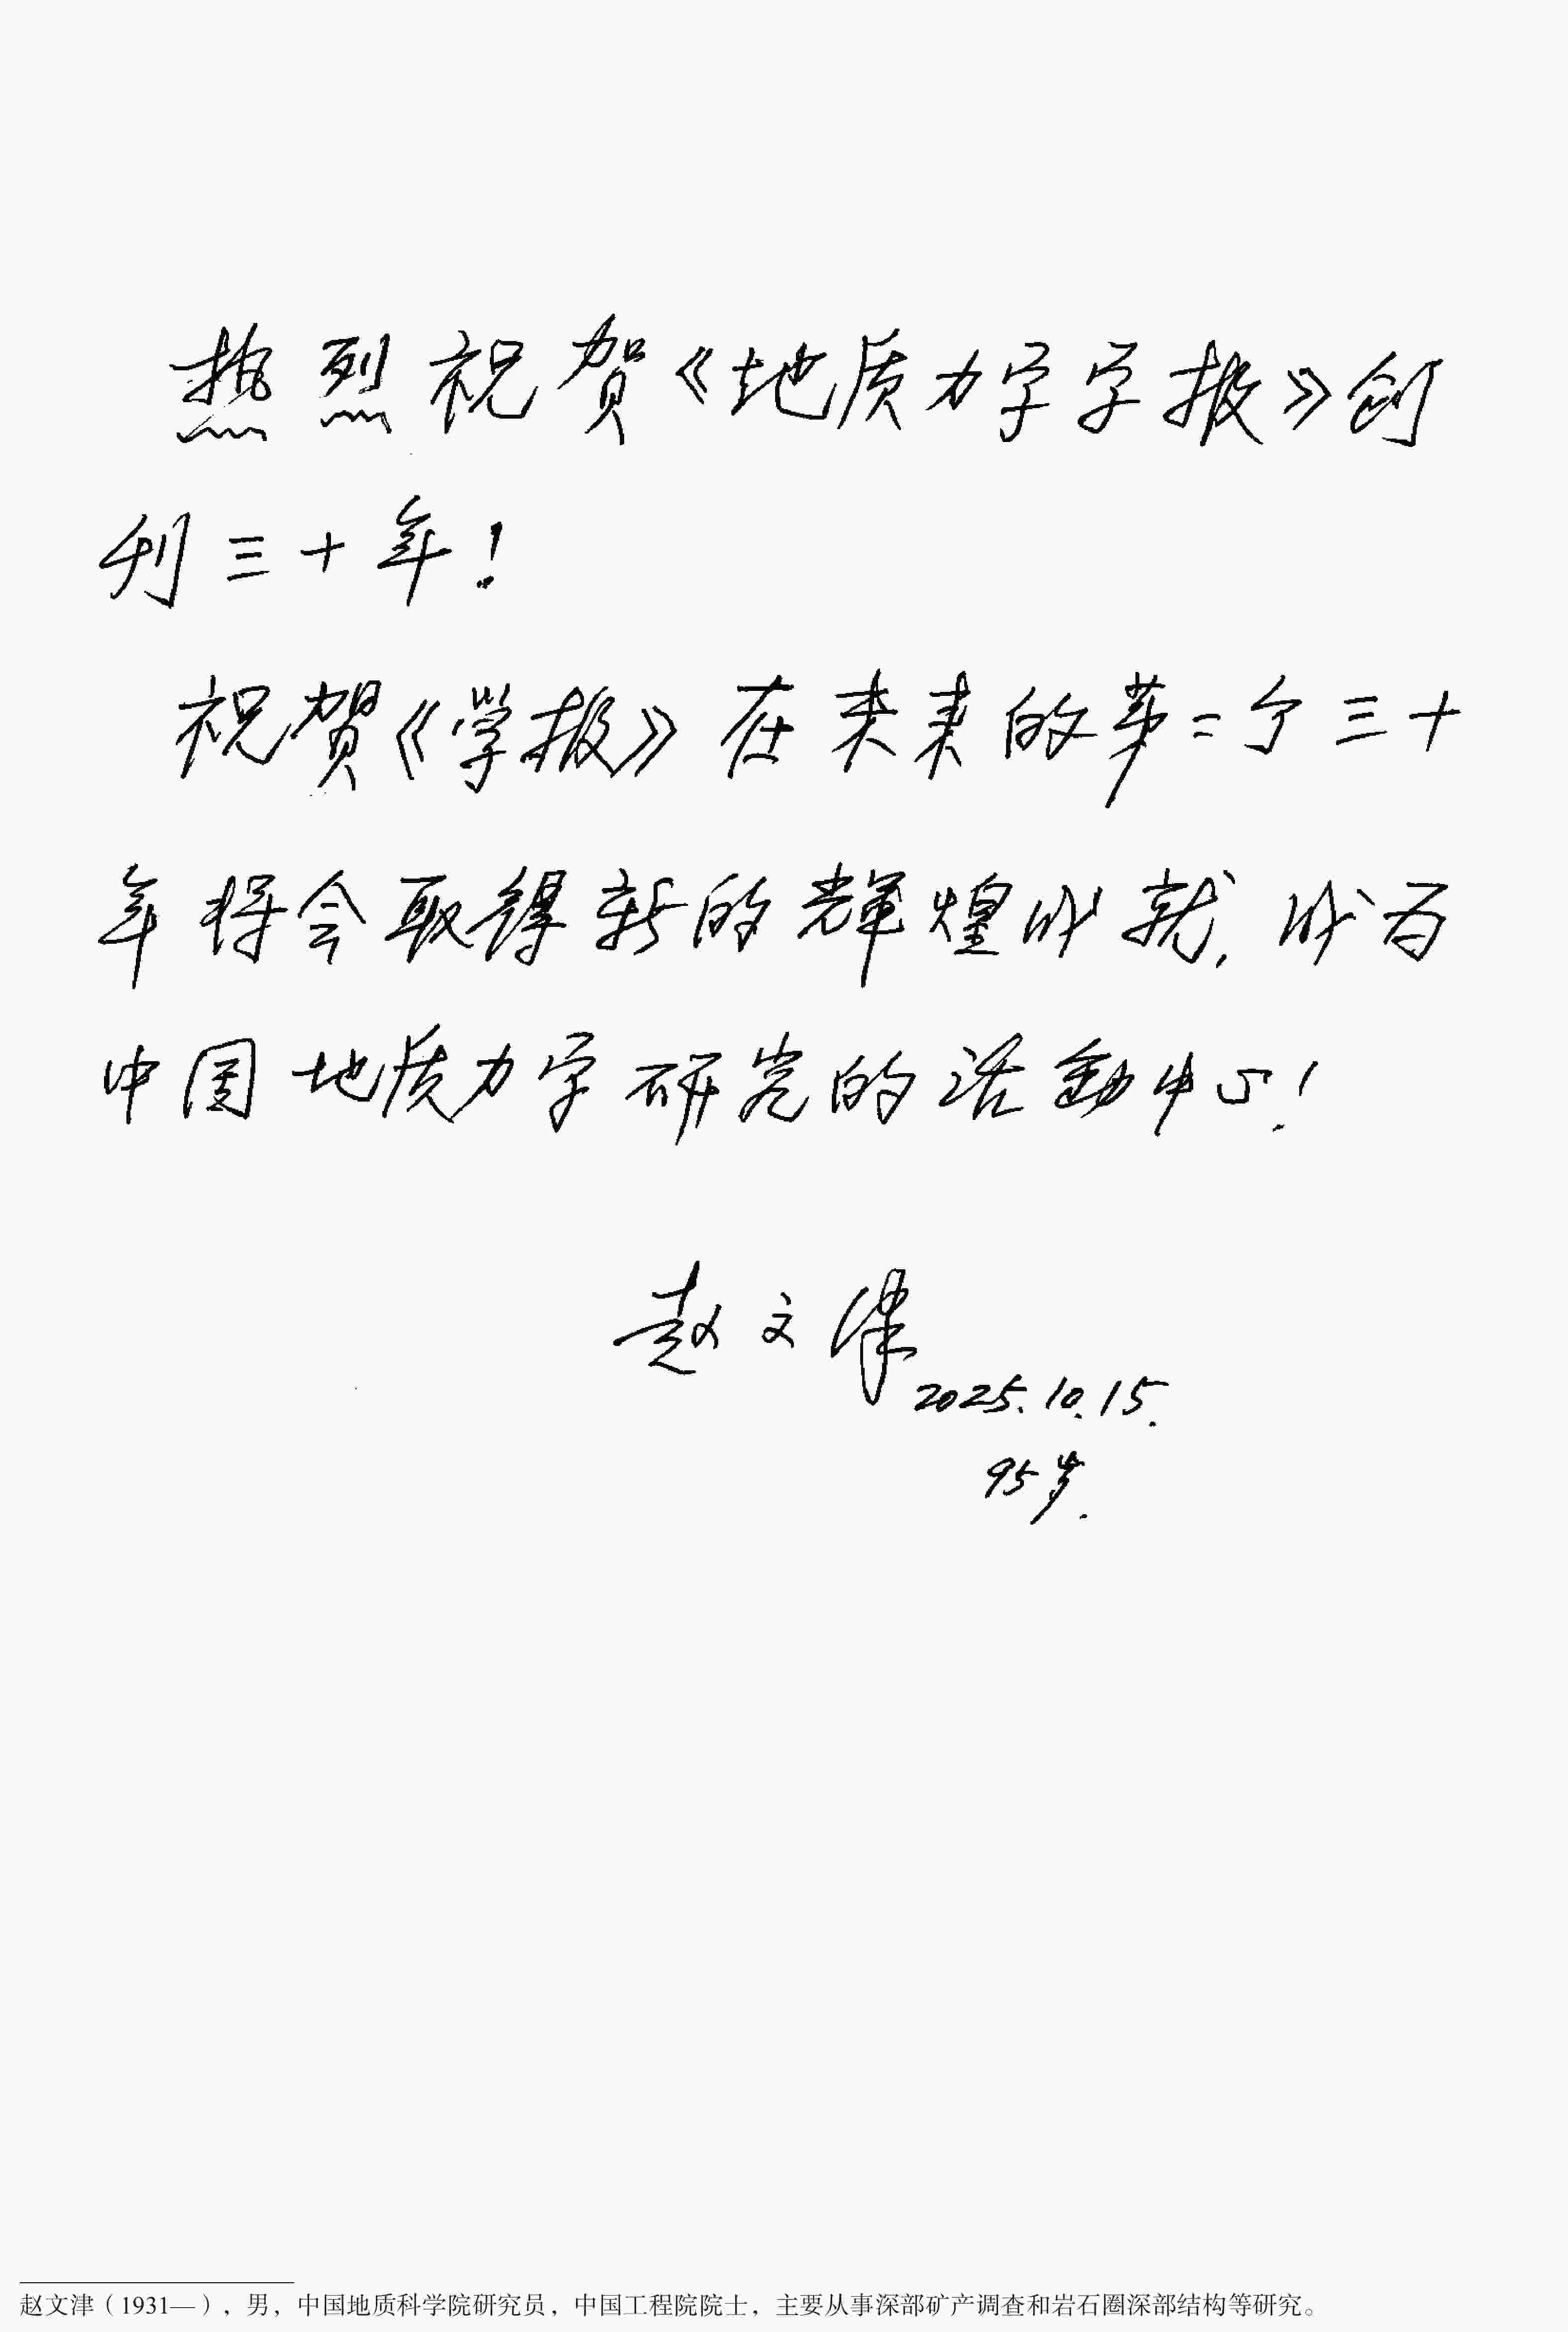 热烈祝贺《地质力学学报》创
刊三十年！
祝贺《学报》在未来的第二个三十
年将会取得新的辉煌成就，成为
中国地质力学研究的活动中心！
赵文津
2025.10.15.
95岁.
赵文津（1931—），男，中国地质科学院研究员，中国工程院院士，主要从事深部矿产调查和岩石圈深部结构等研究。